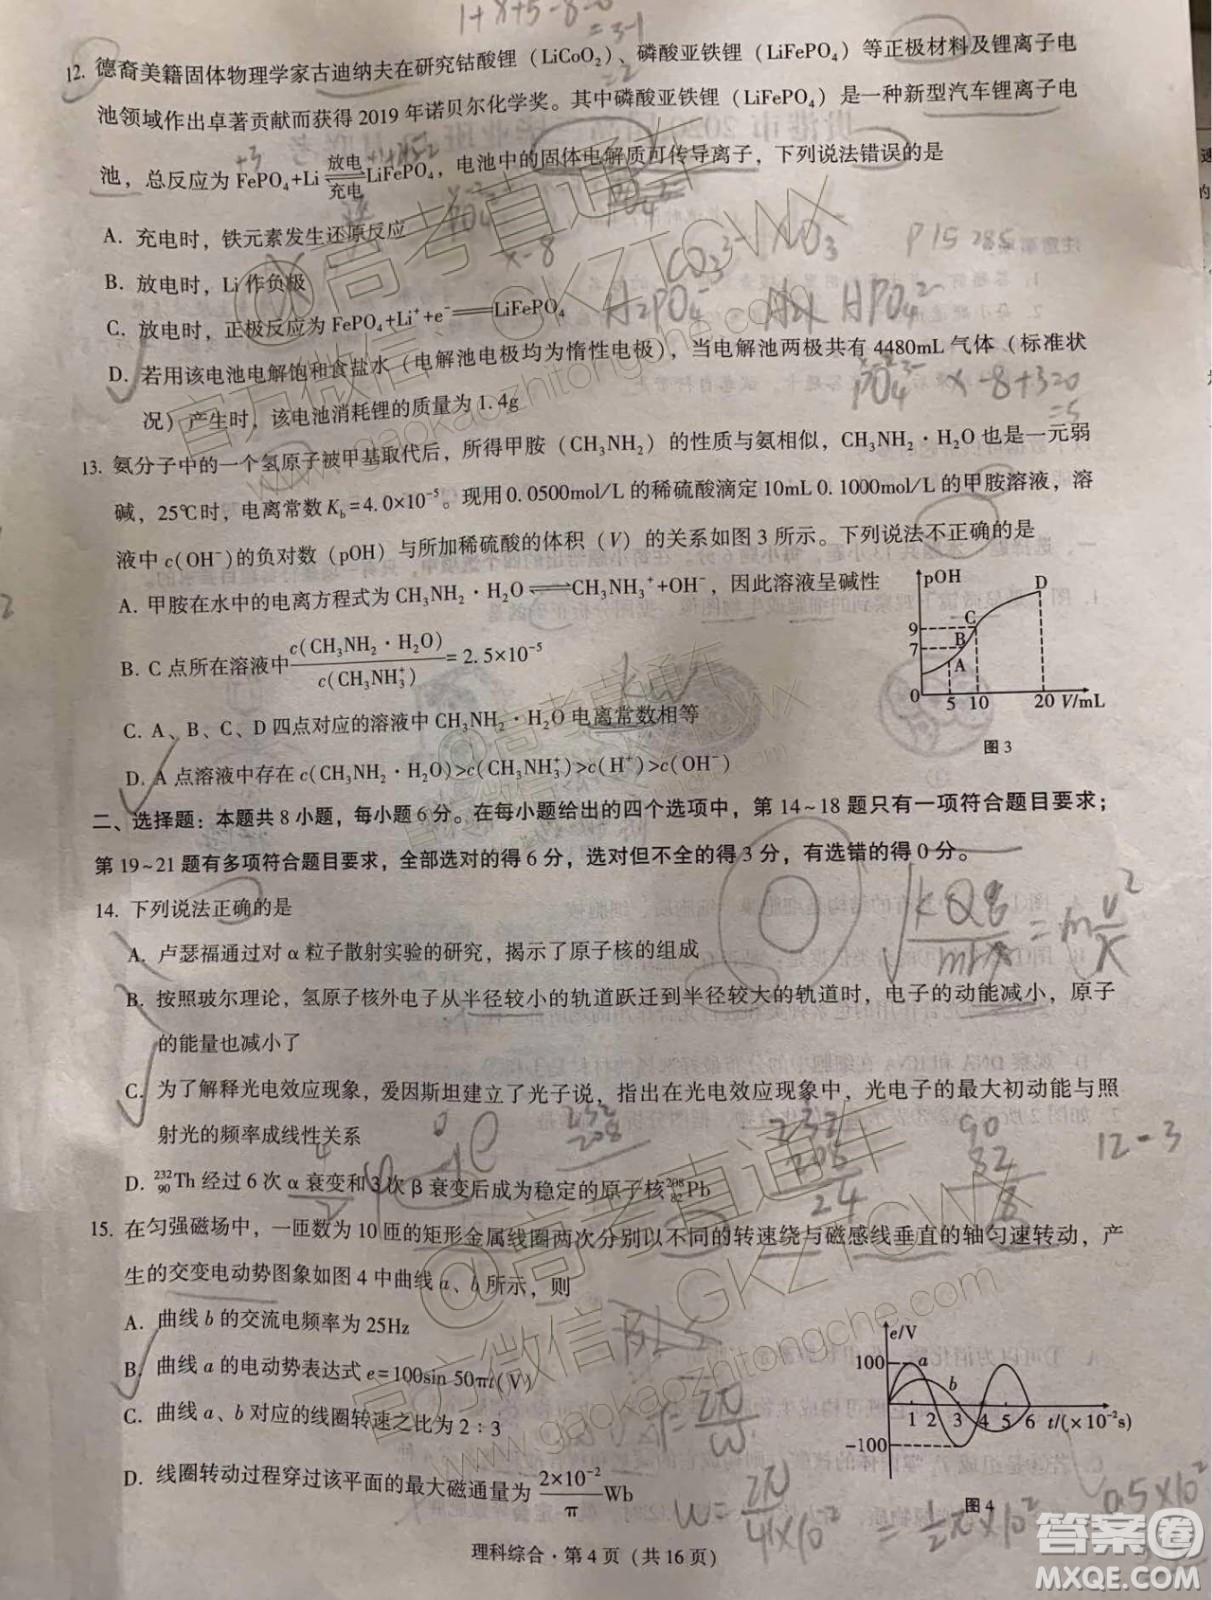 1+x+5-8=0
=3-1
12. 德裔美籍固体物理学家古迪纳夫在研究钴酸锂（LiCoO₂）、磷酸亚铁锂（LiFePO₄）等正极材料及锂离子电
池领域作出卓著贡献而获得 2019 年诺贝尔化学奖。其中磷酸亚铁锂（LiFePO₄）是一种新型汽车锂离子电
池，总反应为 FePO₄+Li 放电⇌充电 LiFePO₄，电池中的固体电解质可传导离子，下列说法错误的是
A. 充电时，铁元素发生还原反应
B. 放电时，Li 作负极
C. 放电时，正极反应为 FePO₄+Li⁺+e⁻══LiFePO₄
D. 若用该电池电解饱和食盐水（电解池电极均为惰性电极），当电解池两极共有 4480mL 气体（标准状
况）产生时，该电池消耗锂的质量为 1.4g
CO₃²⁻ NO₃⁻ P 15 285
H₂PO₄⁻ HPO₄²⁻
PO₄³⁻ x-8+3=0
=5
13. 氨分子中的一个氢原子被甲基取代后，所得甲胺（CH₃NH₂）的性质与氨相似，CH₃NH₂·H₂O 也是一元弱
碱，25℃时，电离常数 K_b=4.0×10⁻⁵。现用 0.0500mol/L 的稀硫酸滴定 10mL 0.1000mol/L 的甲胺溶液，溶
液中 c(OH⁻)的负对数（pOH）与所加稀硫酸的体积（V）的关系如图 3 所示。下列说法不正确的是
A. 甲胺在水中的电离方程式为 CH₃NH₂·H₂O⇌CH₃NH₃⁺+OH⁻，因此溶液呈碱性
B. C 点所在溶液中 c(CH₃NH₂·H₂O)/c(CH₃NH₃⁺)=2.5×10⁻⁵
C. A、B、C、D 四点对应的溶液中 CH₃NH₂·H₂O 电离常数相等
D. A 点溶液中存在 c(CH₃NH₂·H₂O)>c(CH₃NH₃⁺)>c(H⁺)>c(OH⁻)
pOH
D
C
9
B
7
A
0 5 10 20 V/mL
图 3
二、选择题：本题共 8 小题，每小题 6 分。在每小题给出的四个选项中，第 14~18 题只有一项符合题目要求；
第 19~21 题有多项符合题目要求，全部选对的得 6 分，选对但不全的得 3 分，有选错的得 0 分。
14. 下列说法正确的是
A. 卢瑟福通过对 α 粒子散射实验的研究，揭示了原子核的组成
B. 按照玻尔理论，氢原子核外电子从半径较小的轨道跃迁到半径较大的轨道时，电子的动能减小，原子
的能量也减小了
C. 为了解释光电效应现象，爱因斯坦建立了光子说，指出在光电效应现象中，光电子的最大初动能与照
射光的频率成线性关系
D. ²³²₉₀Th 经过 6 次 α 衰变和 3 次 β 衰变后成为稳定的原子核²⁰⁸₈₂Pb
232
208
232
208
24
90
82
8
12-3
15. 在匀强磁场中，一匝数为 10 匝的矩形金属线圈两次分别以不同的转速绕与磁感线垂直的轴匀速转动，产
生的交变电动势图象如图 4 中曲线 a、b 所示，则
A. 曲线 b 的交流电频率为 25Hz
B. 曲线 a 的电动势表达式 e=100sin 50πt(V)
C. 曲线 a、b 对应的线圈转速之比为 2∶3
D. 线圈转动过程穿过该平面的最大磁通量为 2×10⁻²/π Wb
e/V
100
a
b
1 2 3 4 5 6 t/(×10⁻²s)
-100
图 4
理科综合·第 4 页（共 16 页）
@高考直通车
官方微信：GKZTCWX
www.gaokaozhitongche.com
答案圈
MXQE.COM